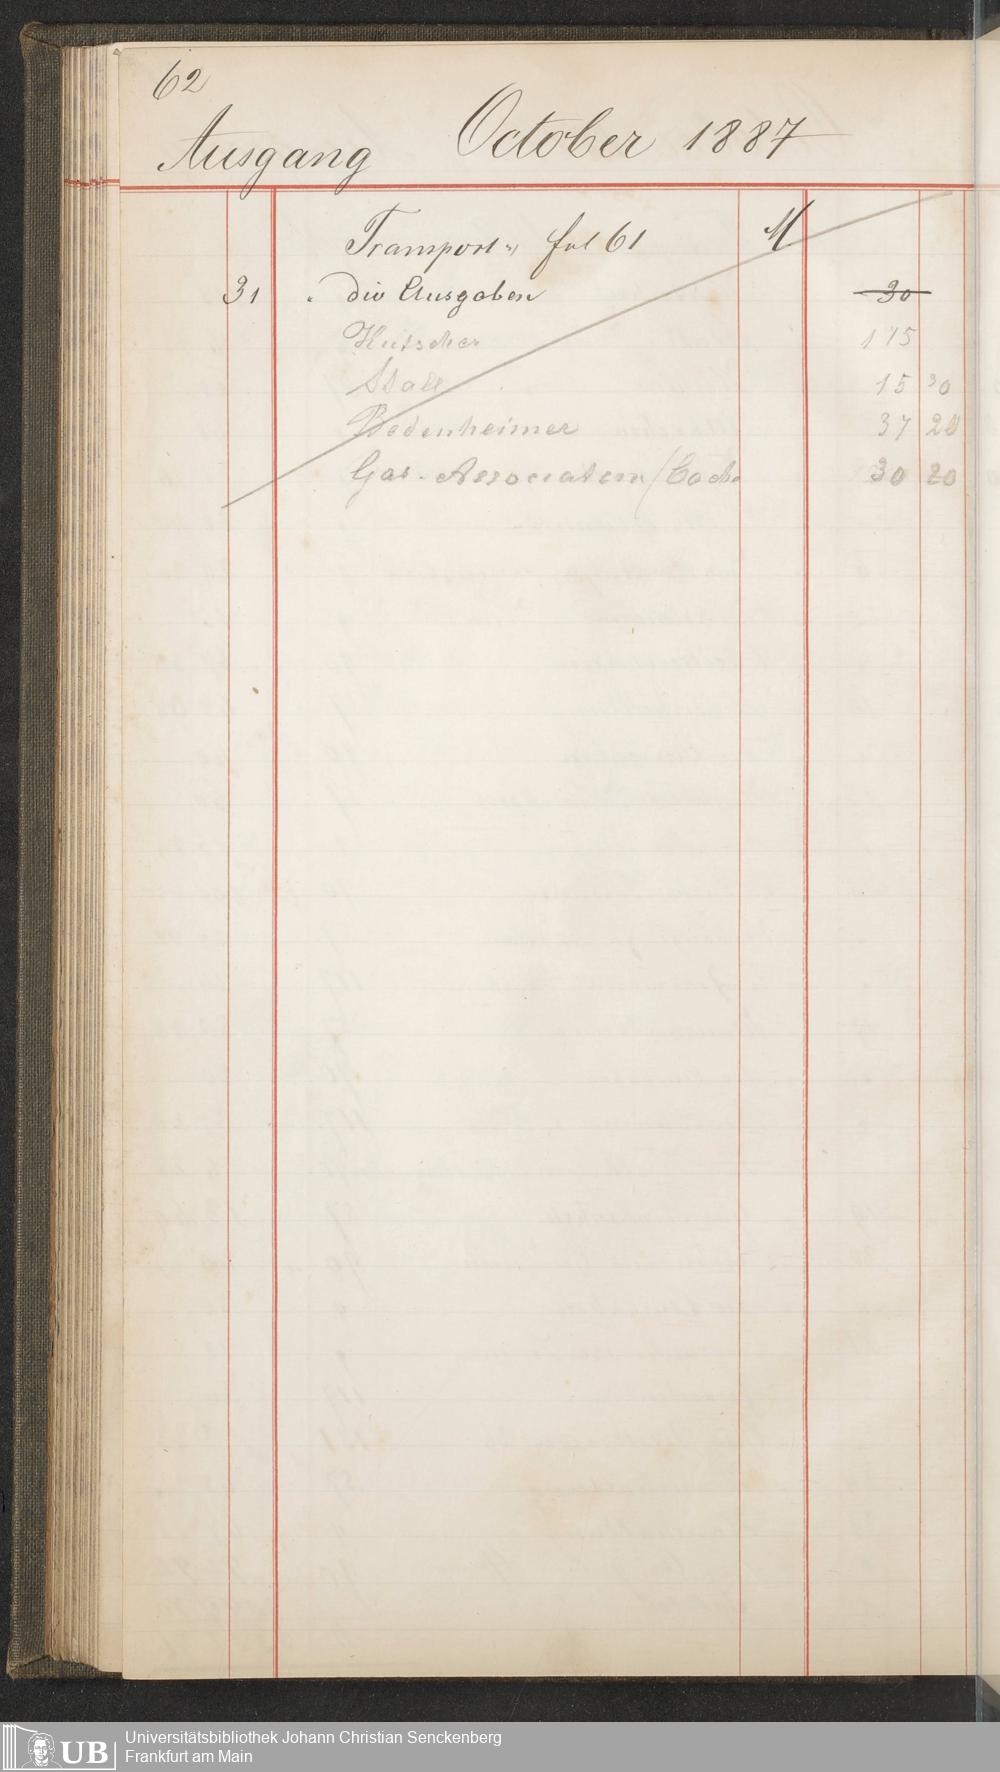 62
Ausgang October 1887
Transport v. fol 61 M
31 " div Ausgaben 30
Kutscher 175
Stall 15 30
Bodenheimer 37 20
Gas-Association (Cocks 30 20
Universitätsbibliothek Johann Christian Senckenberg
Frankfurt am Main
UB